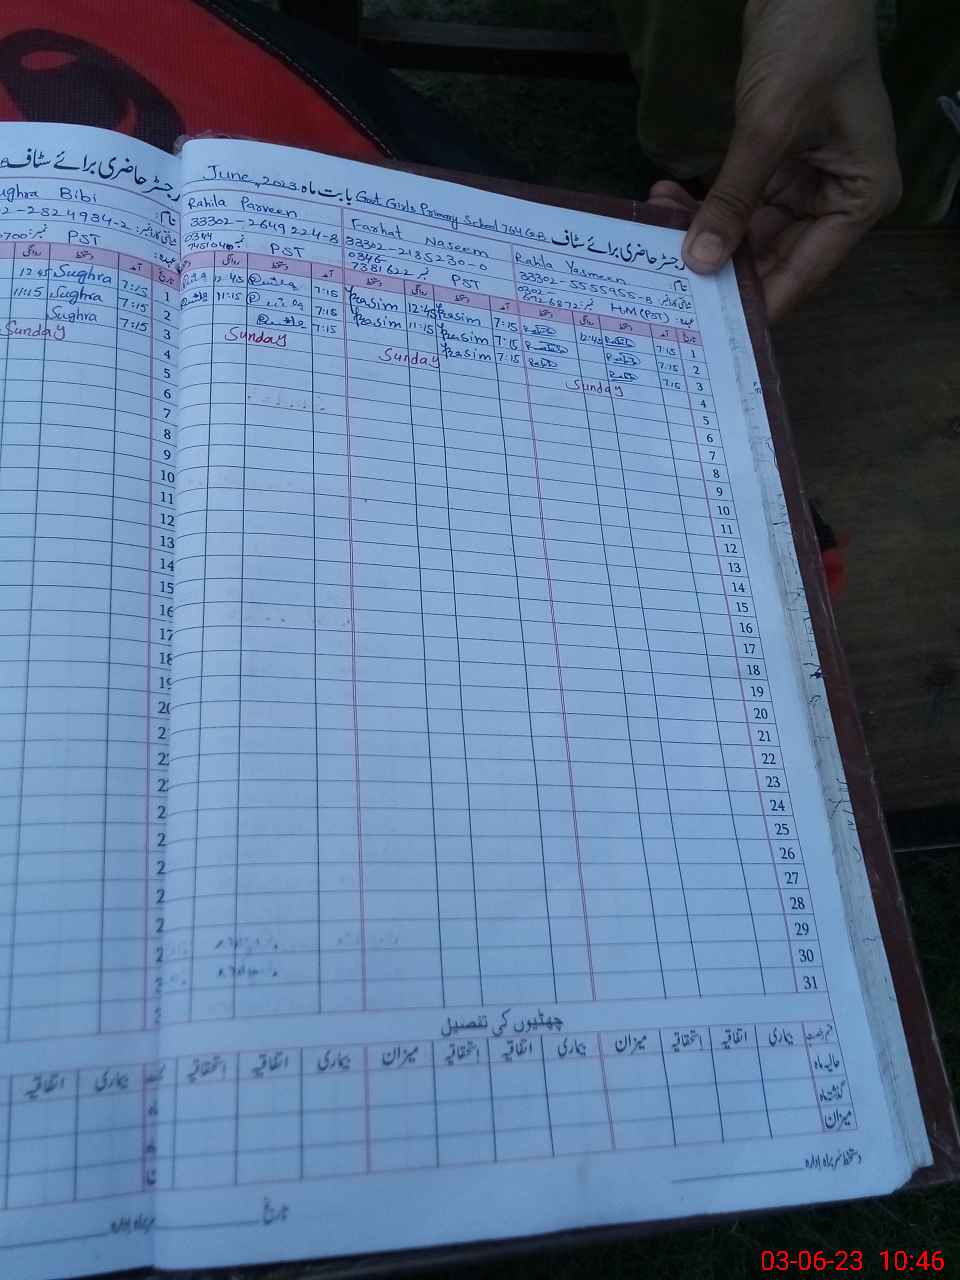 رجسٹر حاضری برائے سٹاف Govt Girls Primary School 764 GB بابت ماہ June, 2023
رجسٹر حاضری برائے سٹاف
Rahla Yasmeen
33302-5555955-8
0302
6726972 H/M (PST)
Farhat Naseem
33302-2185230-0
0346
7381622 نمبر PST
Rahila Parveen
33302-2649224-8
0344
7451040 PST
ughra Bibi
2-2824934-2
0700 نمبر PST
1 7:15 12:45 7:15 12:45 7:15 12:45 7:15 Sughra 12 45
2 7:15 7:15 11:15 7:15 11:15 7:15 Sughra 11:15
3 7:15 7:15 7:15 7:15 Sughra
4 Sunday Sunday Sunday Sunday
5
6
7
8
9
10
11
12
13
14
15
16
17
18
19
20
21
22
23
24
25
26
27
28
29
30
31
چھٹیوں کی تفصیل
بیماری اتفاقیہ استحقاقیہ میزان بیماری اتفاقیہ استحقاقیہ میزان بیماری اتفاقیہ استحقاقیہ
بیماری اتفاقیہ
حالیہ ماہ
گذشتہ ماہ
میزان
دستخط سربراہ ادارہ
تاریخ
سربراہ ادارہ
03-06-23 10:46